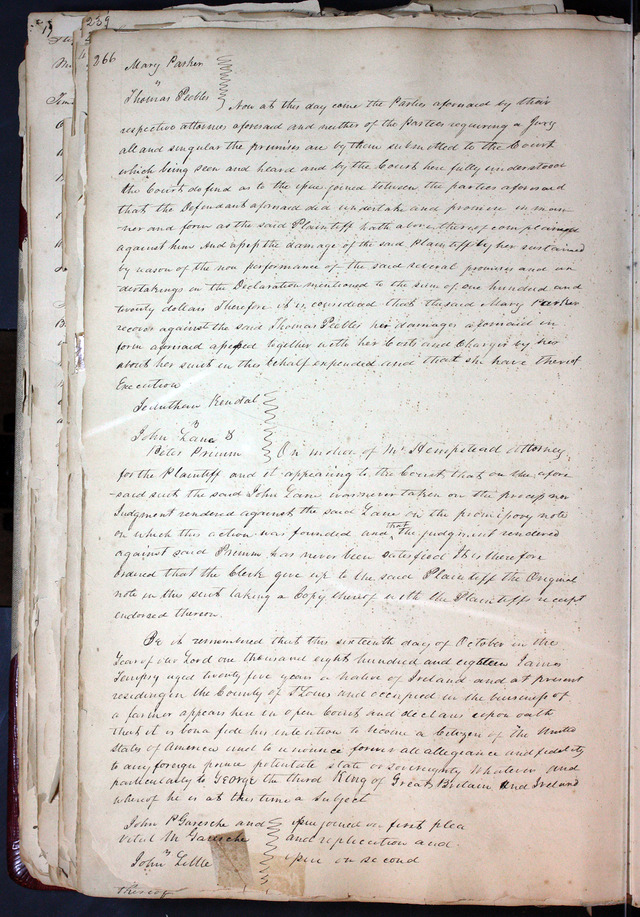 239
266
Mary Parker
vs
Thomas Peebles
Now at this day come the Parties aforesaid by their
respective attornies aforesaid and neither of the Parties requiring a Jury
all and singular the premises are by them submitted to the Court
which being seen and heard and by the Court here fully understood
the Court do find as to the issue joined between the parties aforesaid
that the Defendant aforesaid did undertake and promise in man
ner and form as the said Plaintiff hath above thereof complained
against him And assess the damage of the said Plaintiff by her sustained
by reason of the non performance of the said several promises and un
dertakings in the Declaration mentioned to the sum of one hundred and
twenty dollars Therefore it is considered that the said Mary Parker
recover against the said Thomas Peebles her damages aforesaid in
form aforesaid assessed together with her Costs and Charges by her
about her suit in this behalf expended and that she have thereof
Execution
Jonathan Kendal
vs
John Lane &
Peter Primm
On motion of Mr Hempstead attorney
for the Plaintiff and it appearing to the Court that on the afore
-said suit the said John Lane was never taken on the process nor
Judgment rendered against the said Lane on the promissory note
on which this action was founded and that the judgment rendered
against said Primm has never been satisfied It is therefore
ordered that the Clerk give up to the said Plaintiff the Original
note in this suit taking a Copy thereof with the Plaintiffs receipt
endorsed thereon.
Be it remembered that this sixteenth day of October in the
Year of our Lord one thousand eight hundred and eighteen James
Tempsy aged twenty five years a native of Ireland and at present
residing in the County of St Louis and occupied in the business of
a farmer appears here in open Court and declares upon oath
that it is bona fide his intention to become a Citizen of the United
States of America and to renounce forever all allegiance and fidelity
to any foreign prince potentate state or sovereignty whatever and
particularly to George the third King of Great Britain and Ireland
whereof he is at this time a Subject
John P Garesche and
Vital M Garesche
vs
John Little
issue joined on first plea
and replication and
issue on second
thereof